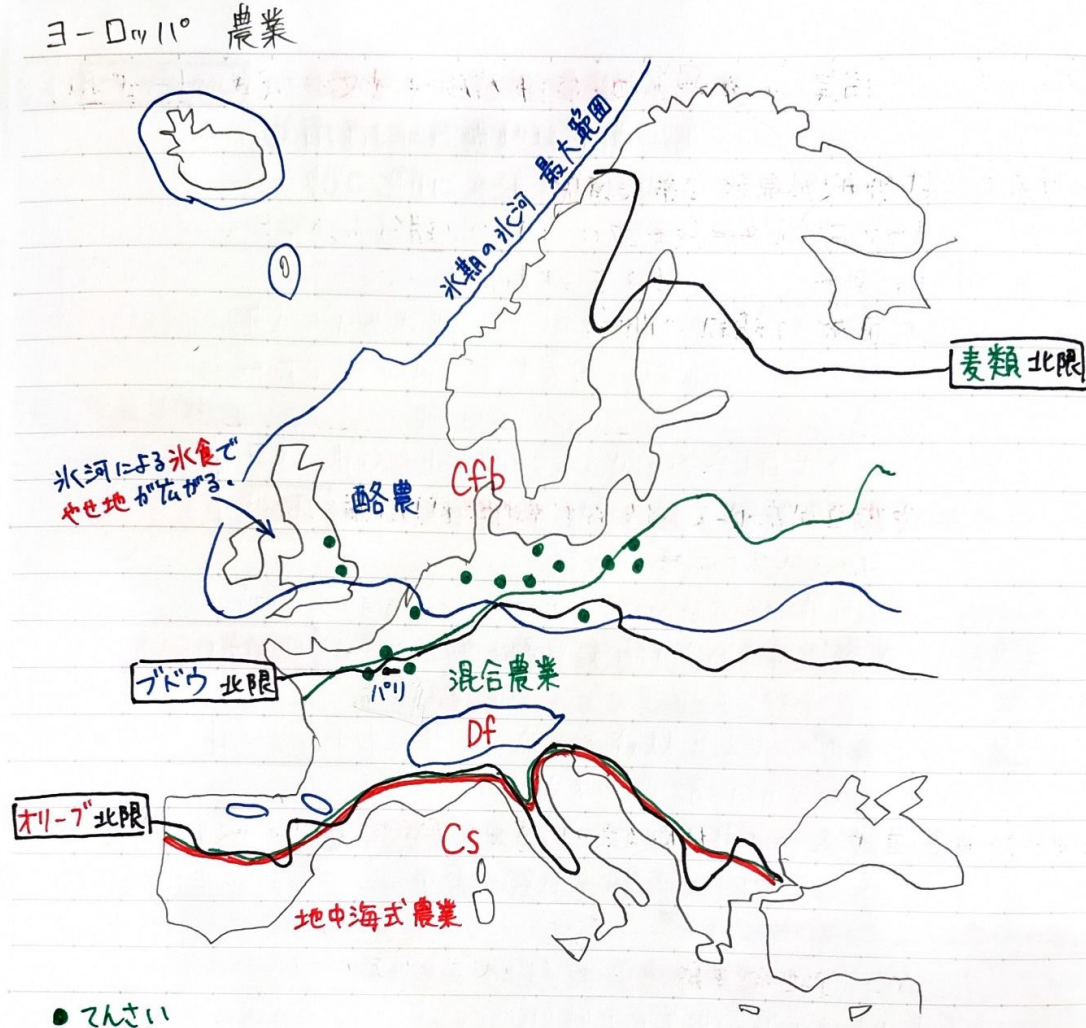 ヨーロッパ 農業
氷期の氷河 最大範囲
麦類 北限
氷河による氷食で
やせ地が広がる.
酪農
Cfb
ブドウ 北限
パリ
混合農業
Df
オリーブ 北限
Cs
地中海式農業
● てんさい